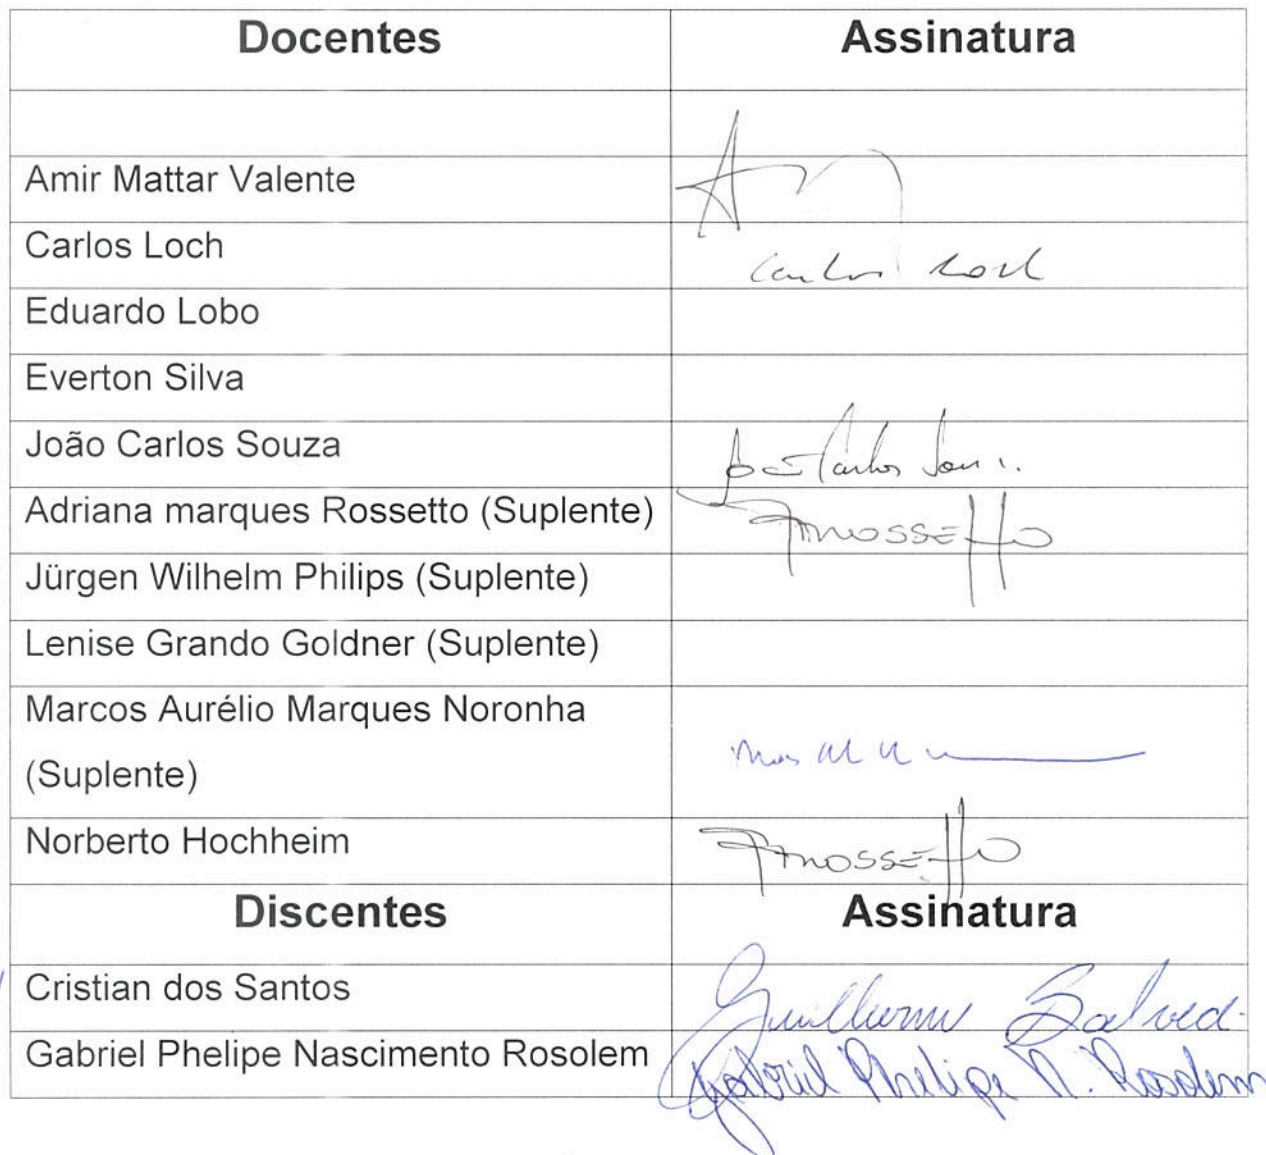 Docentes Assinatura
Amir Mattar Valente
Carlos Loch Carlos Loch
Eduardo Lobo
Everton Silva
João Carlos Souza Carlos
Adriana marques Rossetto (Suplente) AMROSSETTO
Jürgen Wilhelm Philips (Suplente)
Lenise Grando Goldner (Suplente)
Marcos Aurélio Marques Noronha
(Suplente)
Norberto Hochheim AMROSSETTO
Discentes Assinatura
Cristian dos Santos Guilherme
Gabriel Phelipe Nascimento Rosolem Gabriel Phelipe N. Rosolem